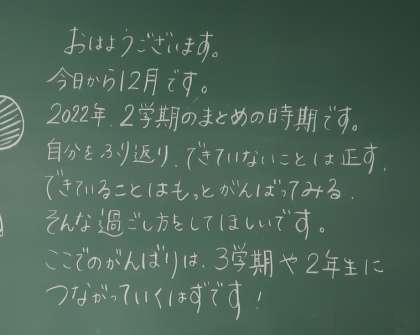 おはようございます。
今日から12月です。
2022年、2学期のまとめの時期です。
自分をふり返り、できていないことは正す、
できていることはもっとがんばってみる、
そんな過ごし方をしてほしいです。
ここでのがんばりは、3学期や2年生に
つながっていくはずです！